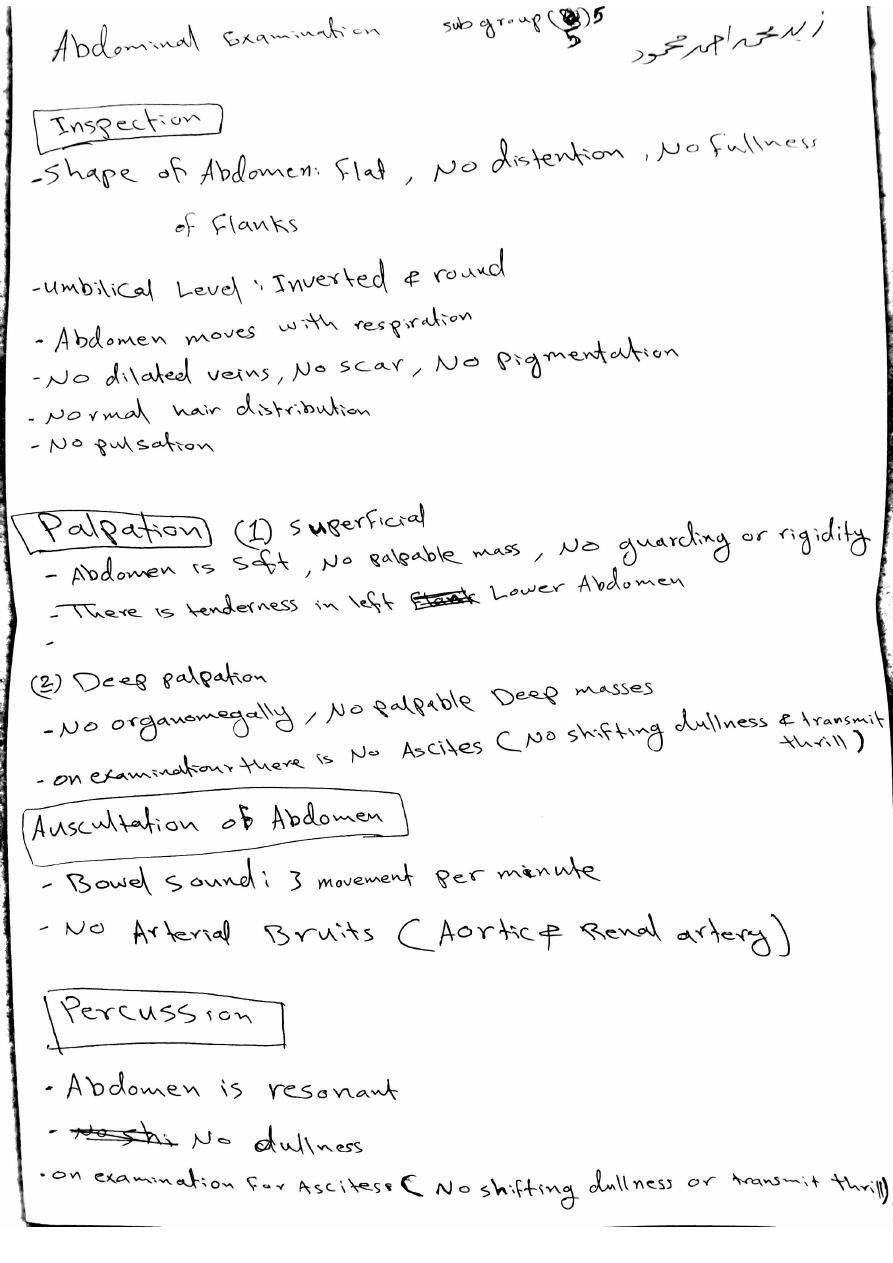 Abdominal Examination
subgroup ( ) 5
5
زيد محمد احمد محمود
Inspection
- Shape of Abdomen: Flat, No distention, No fullness
of Flanks
- umbilical Level: Inverted & round
- Abdomen moves with respiration
- No dilated veins, No scar, No pigmentation
- Normal hair distribution
- No pulsation
Palpation (1) superficial
- Abdomen is soft, No palpable mass, No guarding or rigidity
- There is tenderness in left Flank Lower Abdomen
-
(2) Deep palpation
- No organomegally, No palpable Deep masses
- on examination, there is No Ascites (No shifting dullness & transmit
thrill)
Auscultation of Abdomen
- Bowel sound: 3 movement per minute
- No Arterial Bruits (Aortic & Renal artery)
Percussion
- Abdomen is resonant
- No shi No dullness
- on examination for Ascites: (No shifting dullness or transmit thrill)